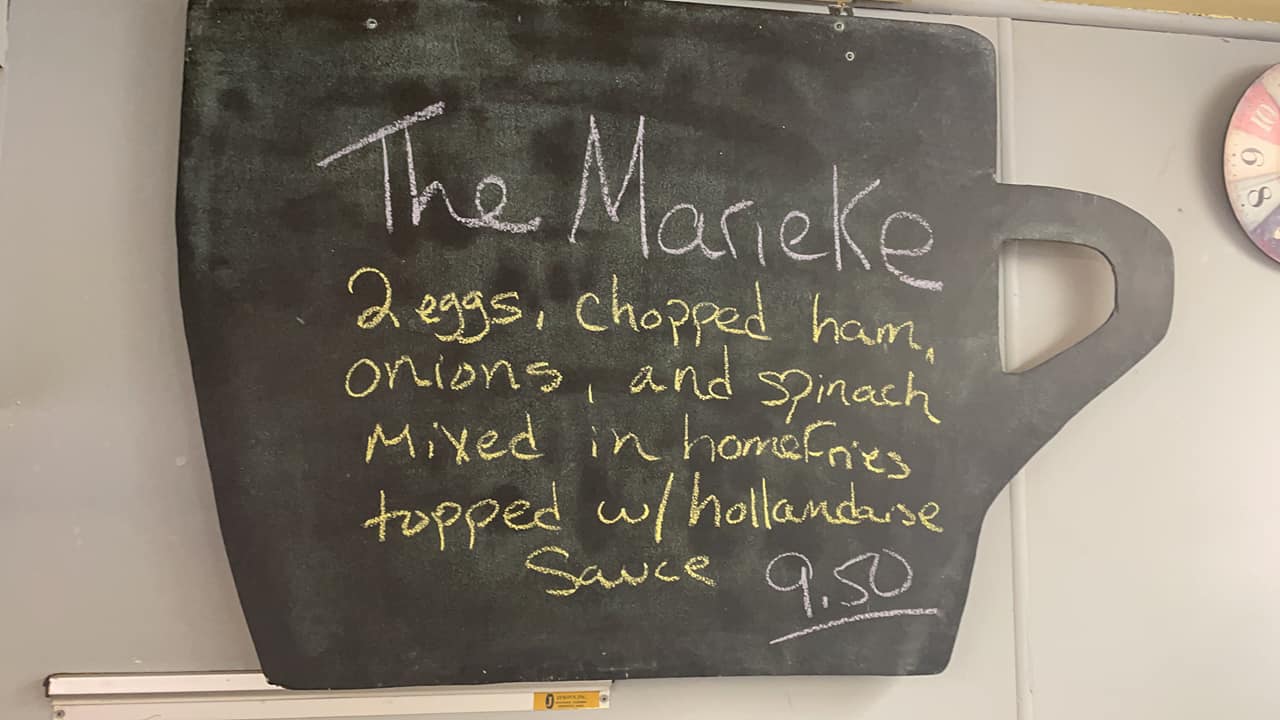 The Marieke
2 eggs, chopped ham,
onions, and spinach
Mixed in homefries
topped w/ hollandaise
Sauce 9.50
10
9
8